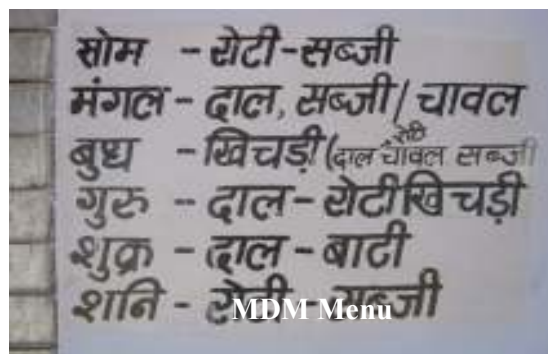 सोम - रोटी-सब्जी
मंगल - दाल, सब्जी / चावल
बुध - खिचड़ी (दाल रोटी चावल सब्जी
गुरु - दाल - रोटी खिचड़ी
शुक्र - दाल - बाटी
शनि - रोटी - सब्जी
MDM Menu